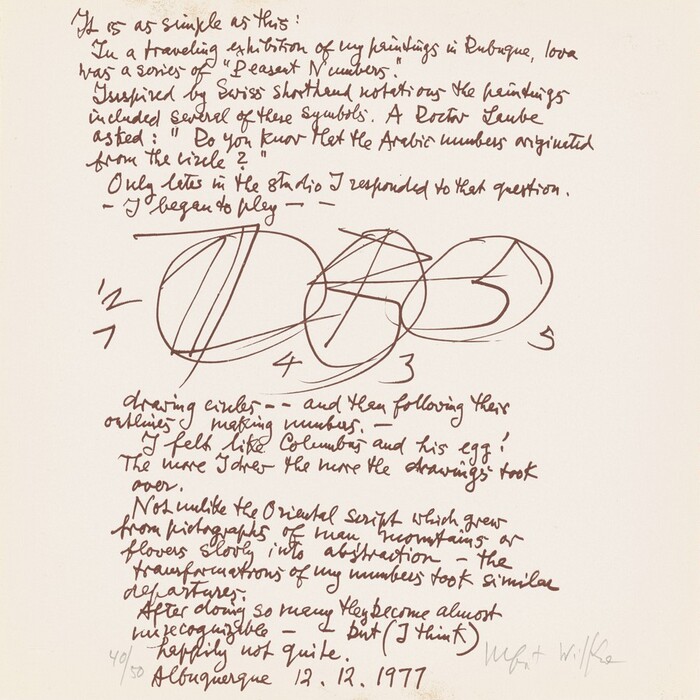 It is as simple as this:
In a traveling exhibition of my paintings in Dubuque, Iova
was a series of "Peasant Numbers."
Inspired by Swiss shorthand notations the paintings
included several of these symbols. A Doctor Laube
asked: "Do you know that the Arabic numbers originated
from the circle?"
Only later in the studio I responded to that question.
- I began to play - -
2
1
4
3
5
drawing circles -- and then following their
outlines making numbers. -
I felt like Columbus and his egg!
The more I drew the more the drawings took
over.
Not unlike the Oriental script which grew
from pictographs of man, mountains or
flowers slowly into abstraction - the
transformations of my numbers took similar
departures.
After doing so many they become almost
unrecognizable - - but (I think)
happily not quite.
40/50
Albuquerque 12.12.1977